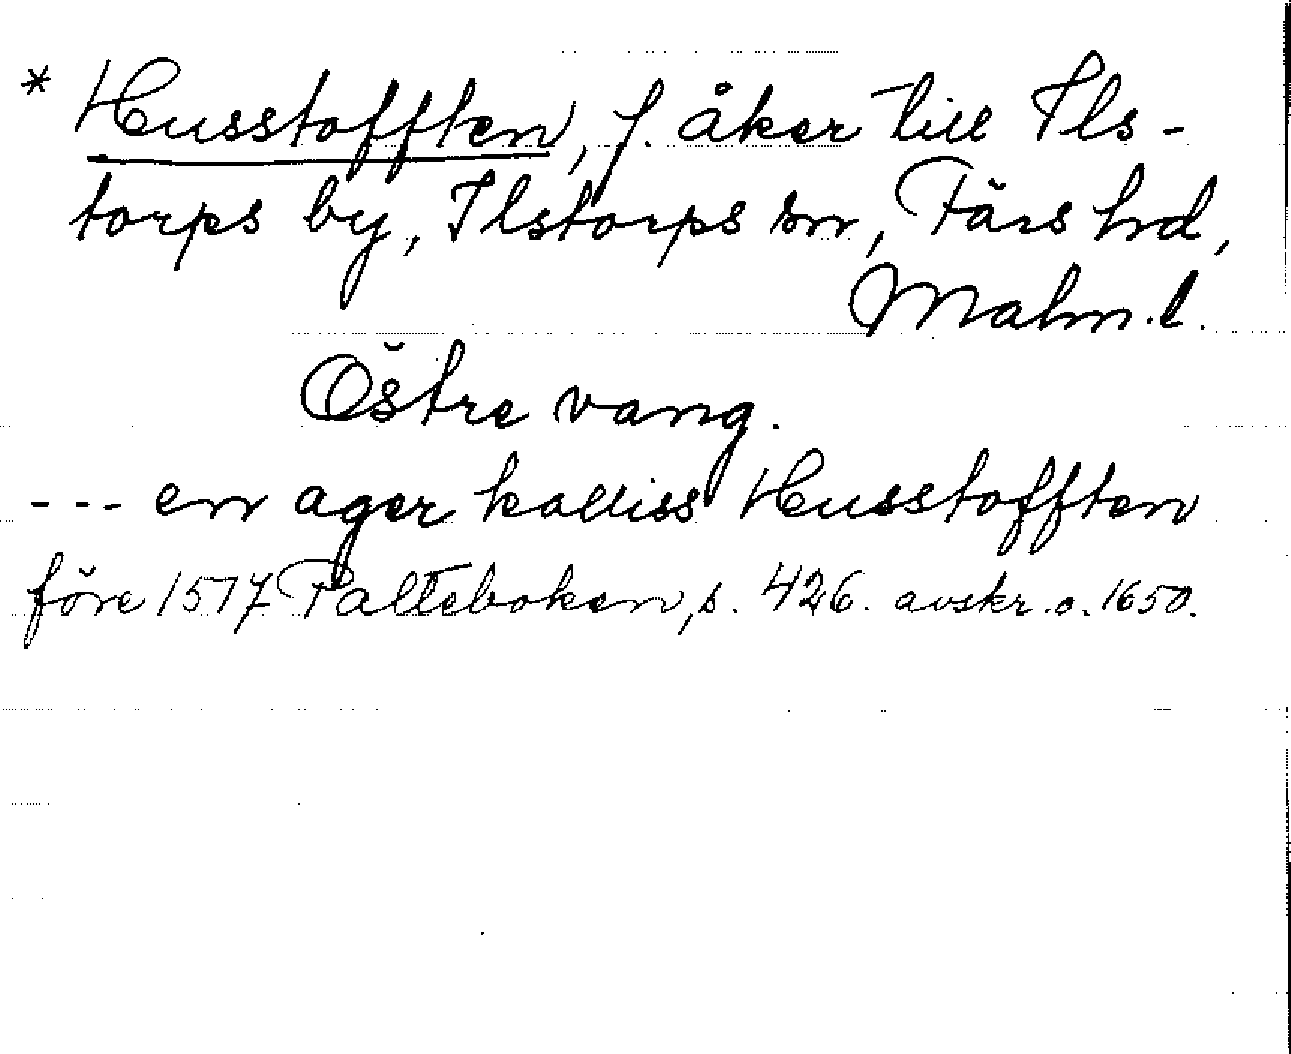 * Husstofften, f. åker till Ils-
torps by, Ilstorps sn, Färs hd,
Malm.l.
Östre vang.
--- en ager kalliss Husstofften
före 1517 Palteboken, s. 426. avskr. o. 1650.